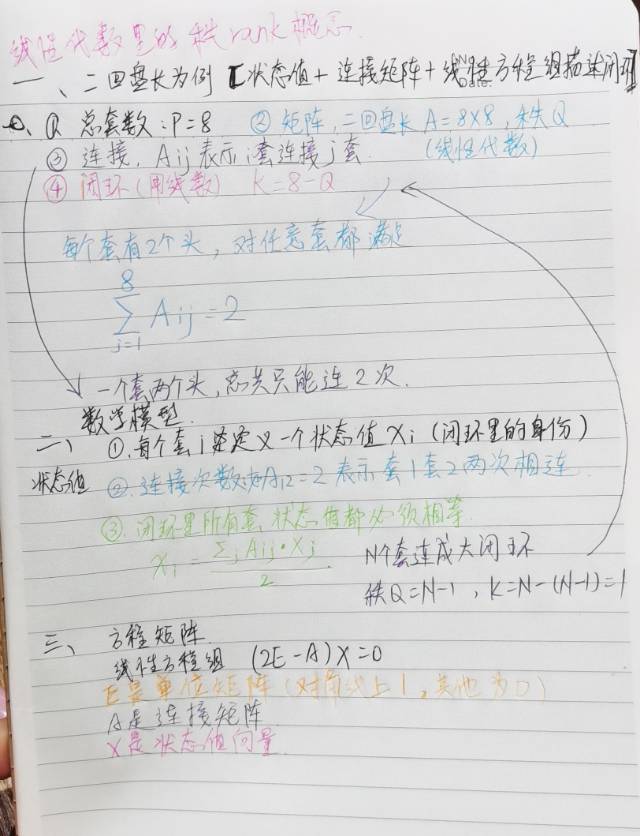 线性代数里的秩rank概念.
一、二回盘长为例【状态值+连接矩阵+线性方程组描述闭环】
① 总套数:P=8 ② 矩阵,二回盘长A=8×8,秩Q
③ 连接,Aij表示i套连接j套 (线性代数)
④ 闭环(用线数) K=8-Q
每个套有2个头,对任意套都满足
8
∑ Aij=2
j=1
一个套两个头,总共只能连2次.
数学模型.
二、 ①.每个套i定义一个状态值Xi(闭环里的身份)
状态值 ②.连接次数A12=2表示套1套2两次相连
③.闭环里所有套,状态值都必须相等.
Xi=∑j Aij·Xj/2
N个套连成大闭环
秩Q=N-1,K=N-(N-1)=1
三、 方程矩阵.
线性方程组 (2E-A)X=0
E是单位矩阵(对角线上1,其他为0)
A是连接矩阵
X是状态值向量.